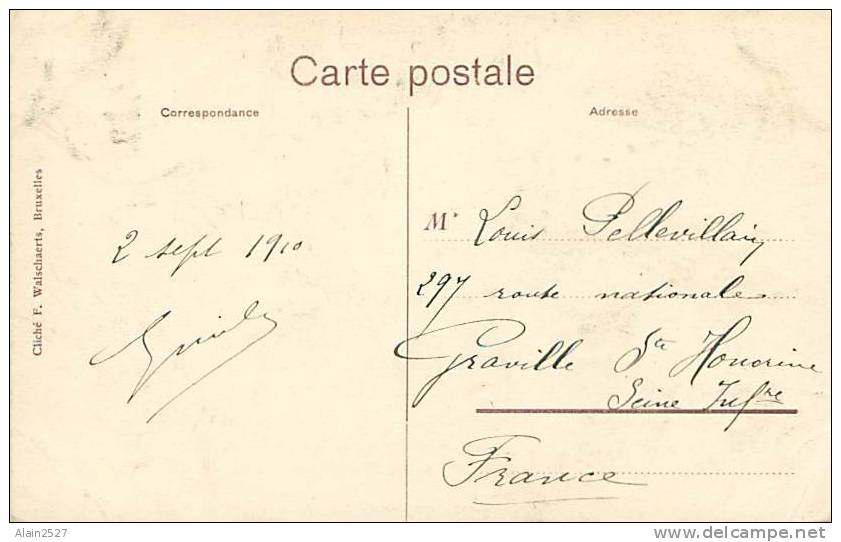 Carte postale
Correspondance
Adresse
Cliché F. Walschaerts, Bruxelles
2 sept 1910
Mr Louis Pellevillain
297 route nationale
Graville Ste Honorine
Seine Infre
France
Alain2527
www.delcampe.net